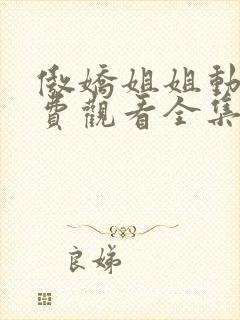 傲嬌姐姐動
費觀看全集
良娣